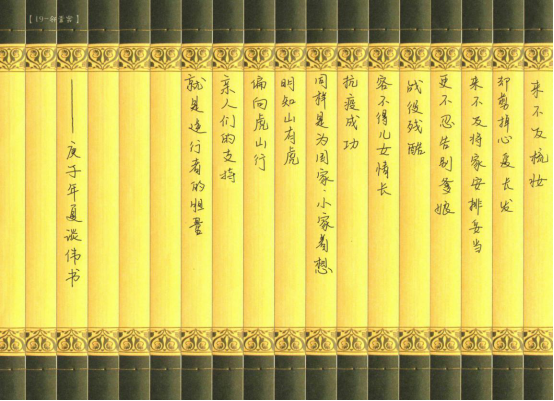 【19-祢画案】
来不及梳妆
却剪掉心爱长发
来不及将家安排妥当
更不忍告别爹娘
战役残酷
容不得儿女情长
抗疫成功
同样是为国家·小家着想
明知山有虎
偏向虎山行
亲人们的支持
就是逆行者的胆量
——庚子年夏谈伟书